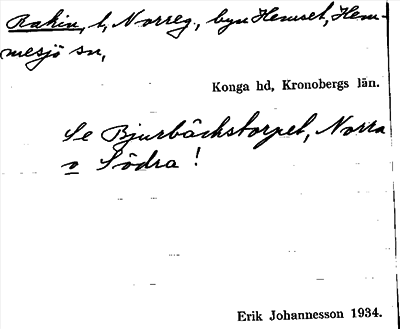 Rakin, t, Norreg., byn Hemset, Hem-
mesjö sn,
Konga hd, Kronobergs län.
Se Bjurbäckstorpet, Norra
o Södra !
Erik Johannesson 1934.